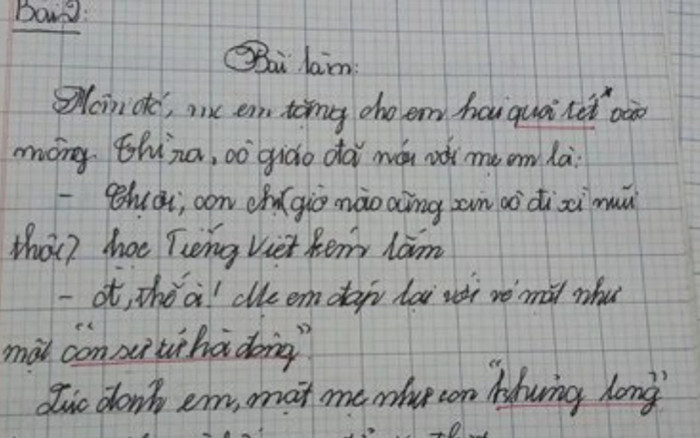 Bài 2:
Bài làm:
Hôm đó, mẹ em tặng cho em hai quai tét* vào
mông. Thì ra, cô giáo đã nói với mẹ em là:
- Chị ơi, con chị giờ nào cũng xin cô đi xì mũi
thôi? học Tiếng Việt kém lắm
- Ờ, thế à! Mẹ em đáp lại với vẻ mặt như
một "con sư tử hà đông"
Lúc đánh em, mặt mẹ như con "khủng long"